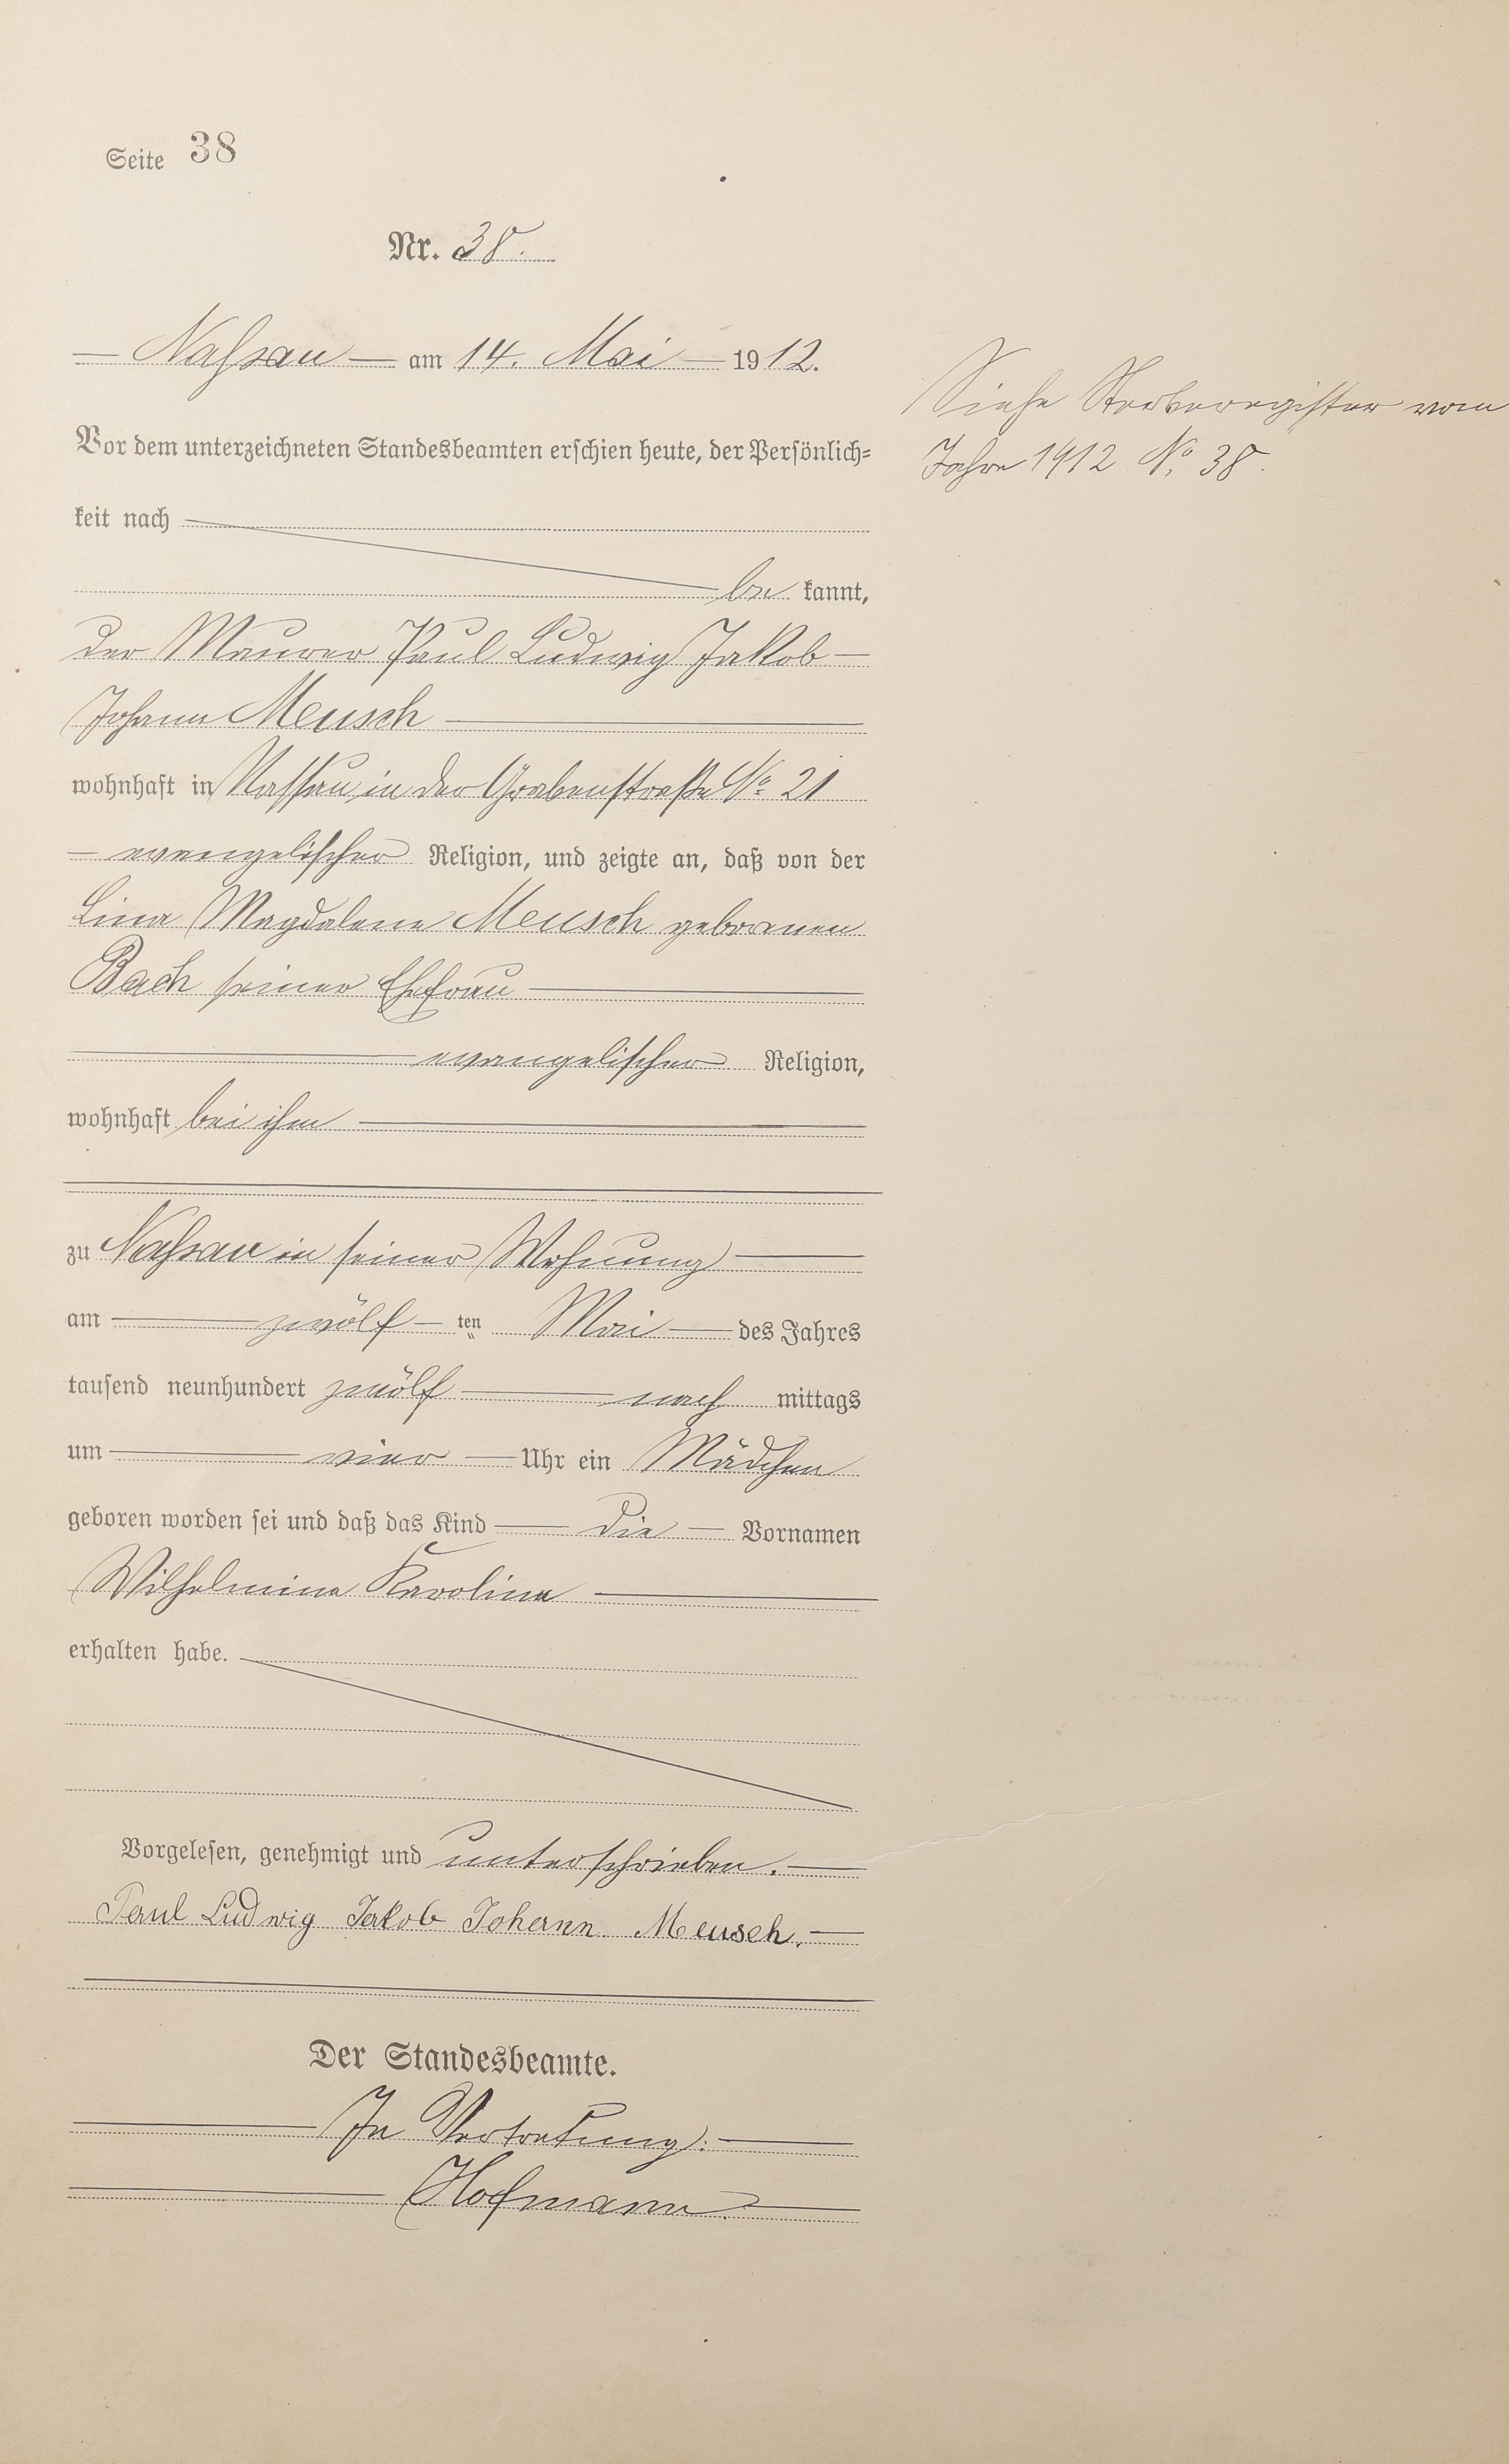 Seite 38
Nr. 38.
Nassau am 14. Mai 1912.
Siehe Sterberegister vom
Jahre 1912 No. 38.
Vor dem unterzeichneten Standesbeamten erschien heute, der Persönlich-
keit nach
be kannt,
der Maurer Paul Ludwig Jakob
Johann Meusch
wohnhaft in Nassau in der Grabenstraße No. 21
evangelischer Religion, und zeigte an, daß von der
Lina Magdalene Meusch geborenen
Bach seiner Ehefrau
evangelischer Religion,
wohnhaft bei ihm
zu Nassau in seiner Wohnung
am zwölf ten Mai des Jahres
tausend neunhundert zwölf nach mittags
um vier Uhr ein Mädchen
geboren worden sei und daß das Kind die Vornamen
Wilhelmine Karoline
erhalten habe.
Vorgelesen, genehmigt und unterschrieben.
Paul Ludwig Jakob Johann Meusch.
Der Standesbeamte.
In Vertretung:
Hofmann.